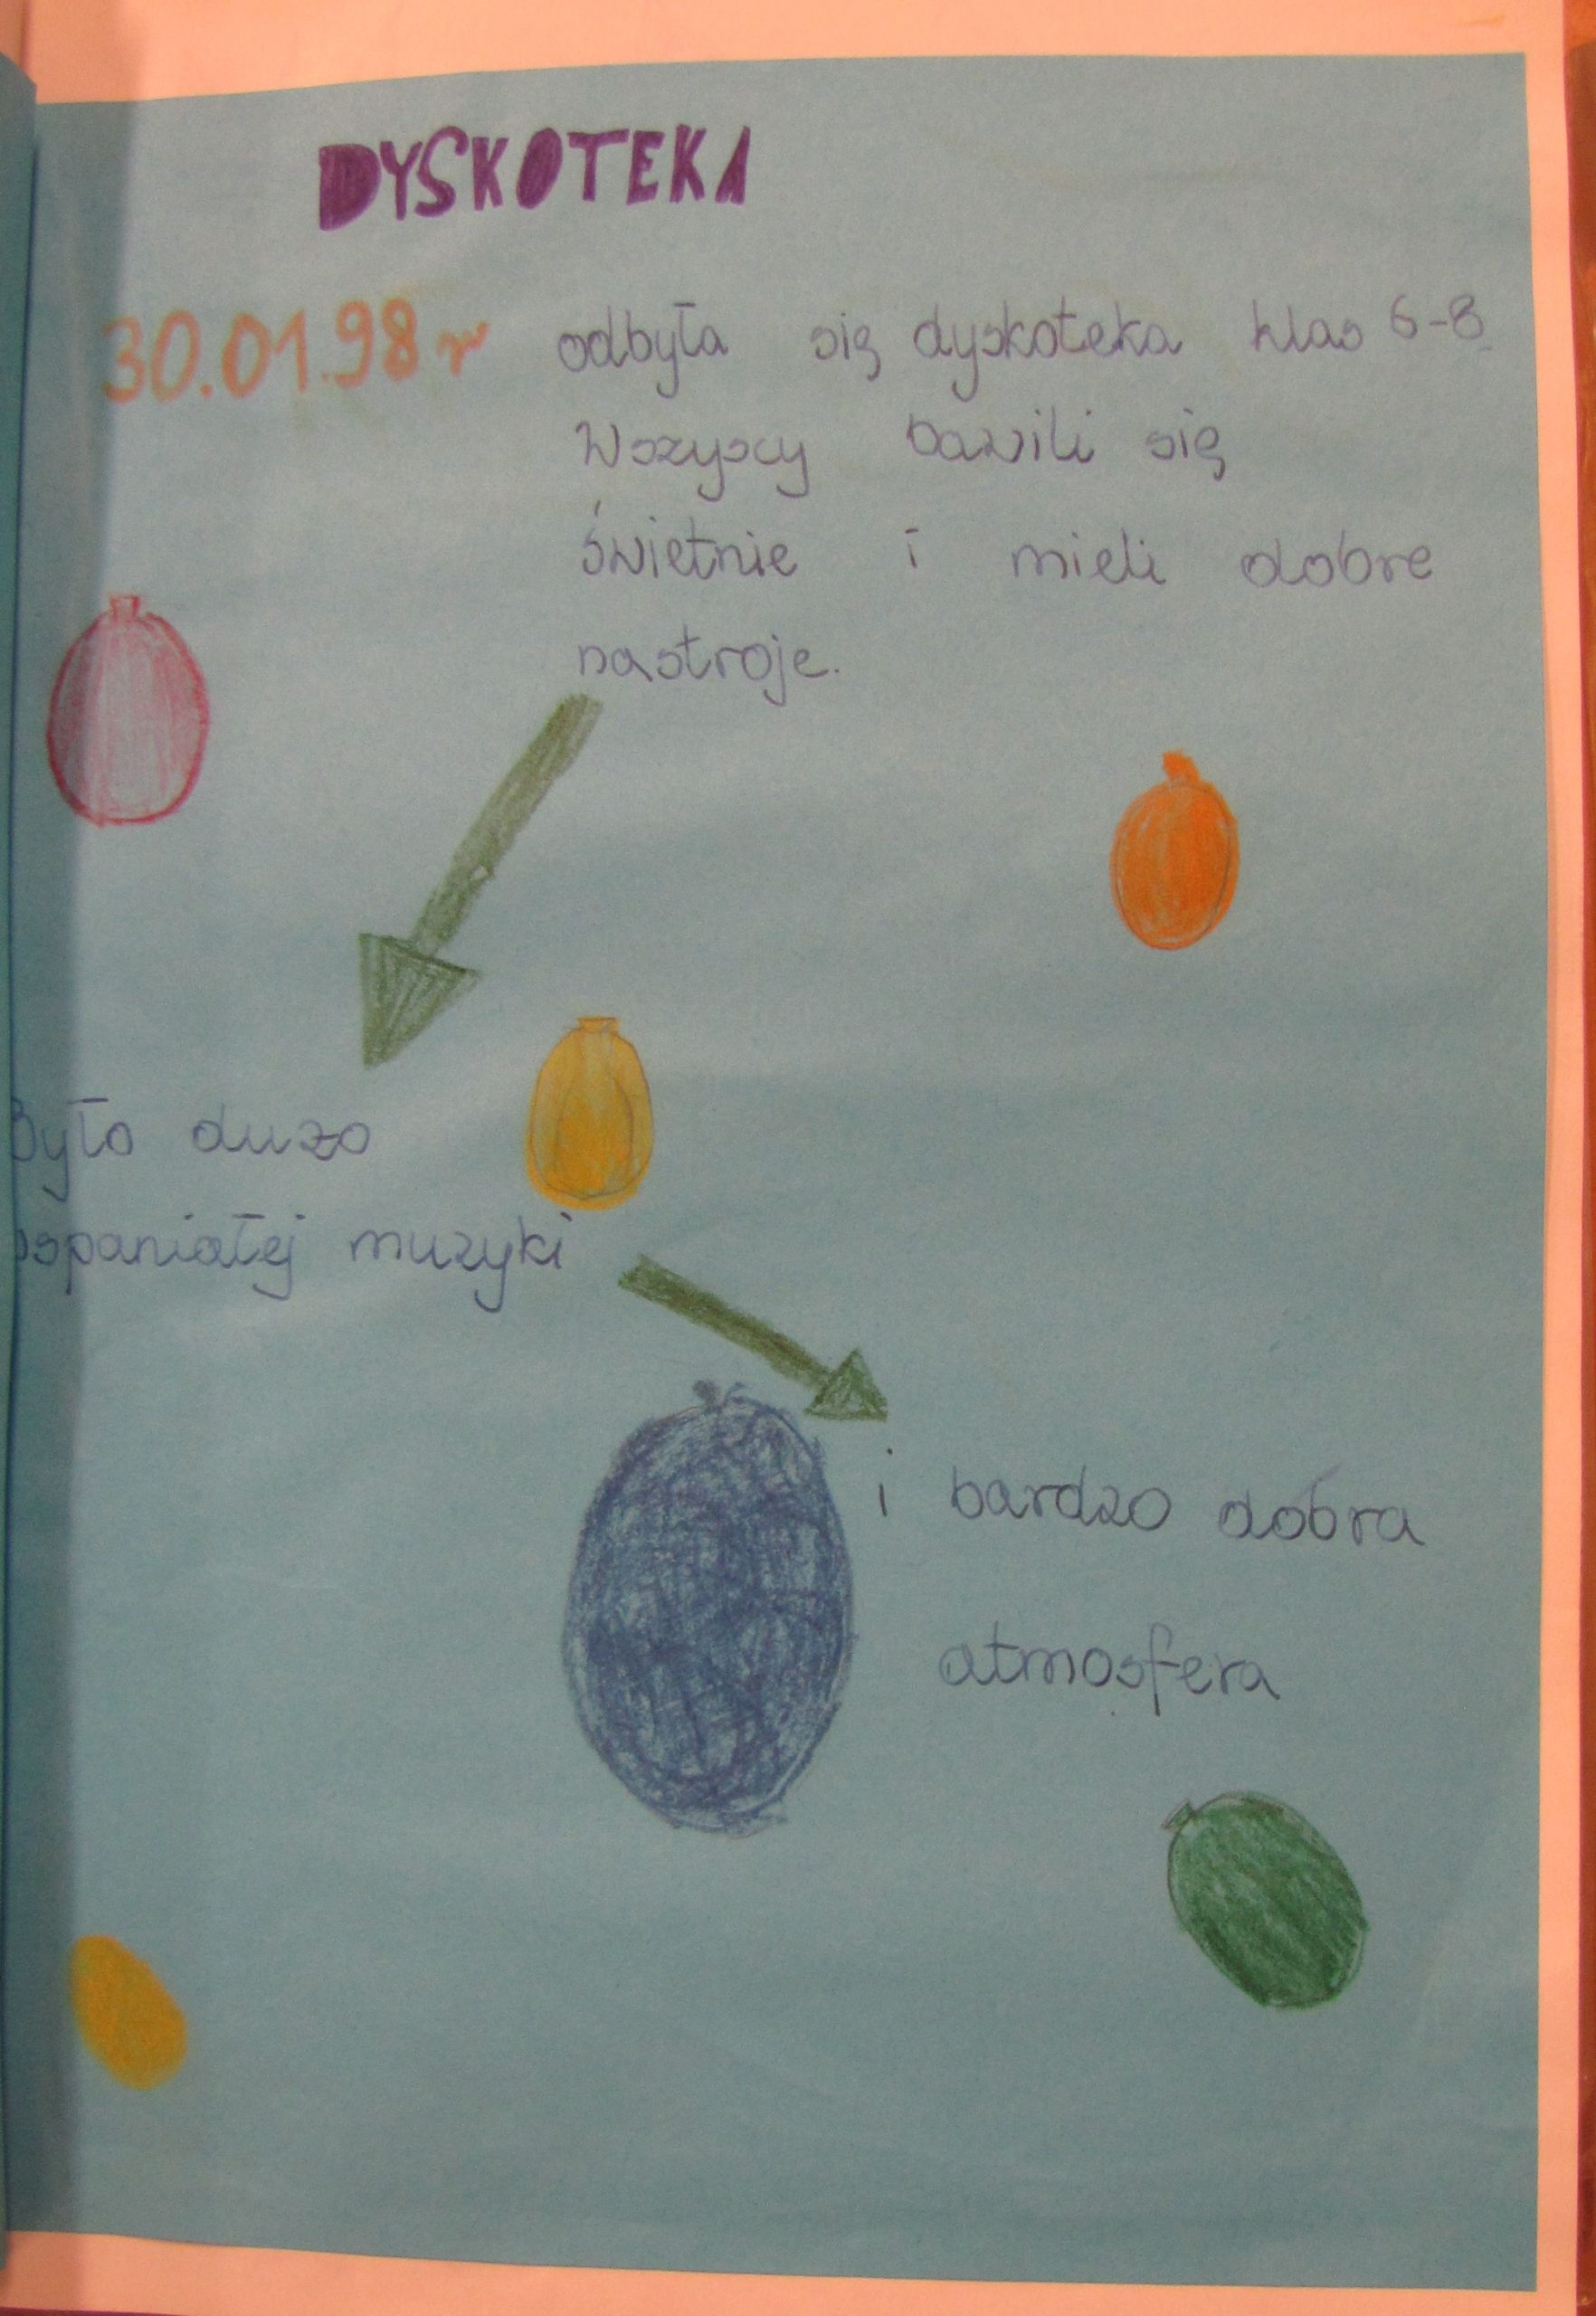 DYSKOTEKA
30.01.98 r odbyła się dyskoteka klas 6-8.
Wszyscy bawili się
świetnie i mieli dobre
nastroje.
Było dużo
wspaniałej muzyki
i bardzo dobra
atmosfera